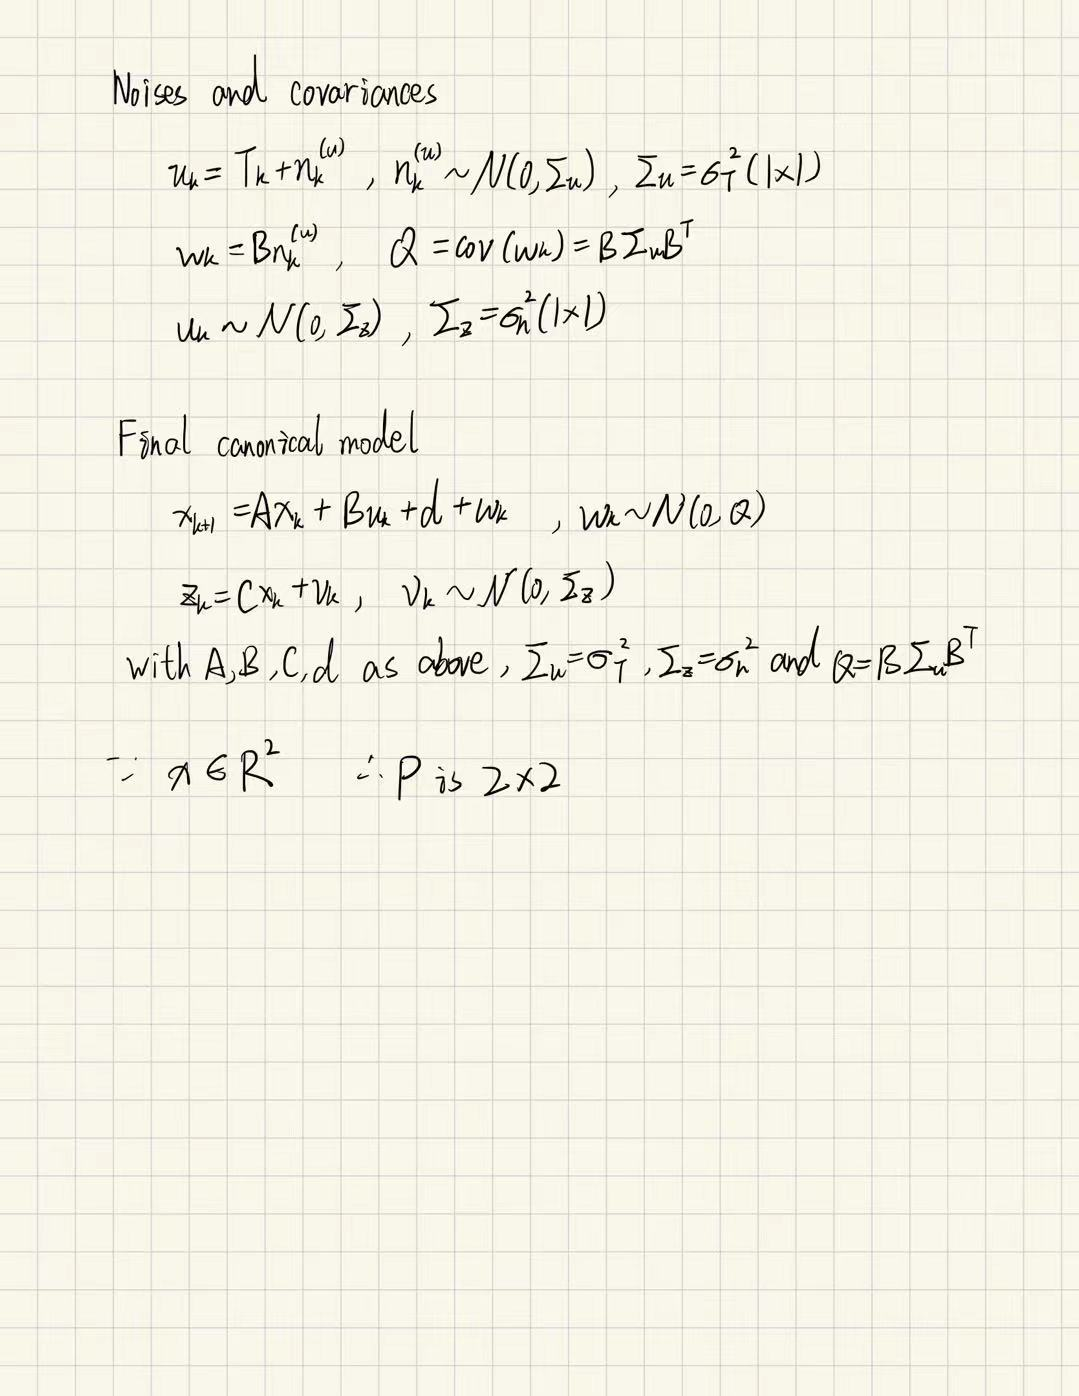 Noises and covariances
u_k = T_k + n_k^(u) , n_k^(u) ~ N(0, Σ_u) , Σ_u = σ_T^2 (1×1)
w_k = B n_k^(u) , Q = cov(w_k) = B Σ_u B^T
u_k ~ N(0, Σ_z) , Σ_z = σ_n^2 (1×1)
Final canonical model
x_{k+1} = A x_k + B u_k + d + w_k , w_k ~ N(0, Q)
z_k = C x_k + v_k , v_k ~ N(0, Σ_z)
with A, B, C, d as above , Σ_u = σ_T^2 , Σ_z = σ_n^2 and Q = B Σ_u B^T
∵ x ∈ R^2 ∴ P is 2×2